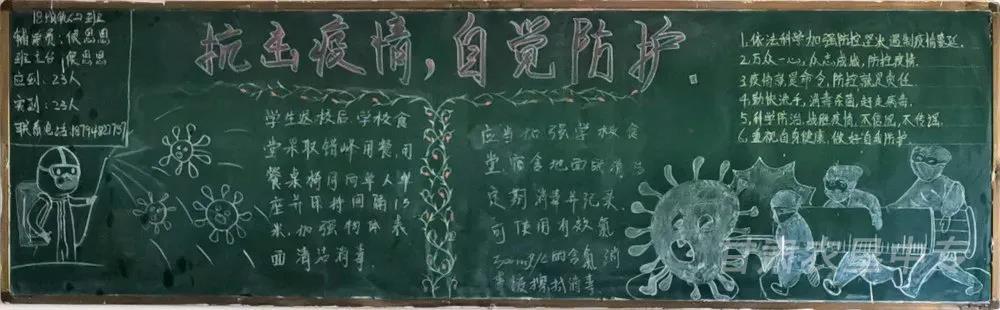 抗击疫情,自觉防护
辅导员:侯思思
班主任:侯思思
应到:23人
实到:23人
联系电话:18794822757
学生返校后,学校食
堂采取错峰用餐,用
餐桌椅同向单人单
座并保持间隔1.5
米,加强物体表
面清洁消毒
应当加强学校食
堂、宿舍地面的清洁
定期消毒并记录,
可使用有效氯
250mg/L的含氯消
毒液擦拭消毒
1.依法科学加强防控,坚决遏制疫情蔓延.
2.万众一心,众志成城,防控疫情.
3.疫情就是命令,防控就是责任
4.勤快洗手,消毒杀菌,赶走病毒.
5.科学防治,战胜疫情,不信谣,不传谣.
6.重视自身健康,做好自我防护.